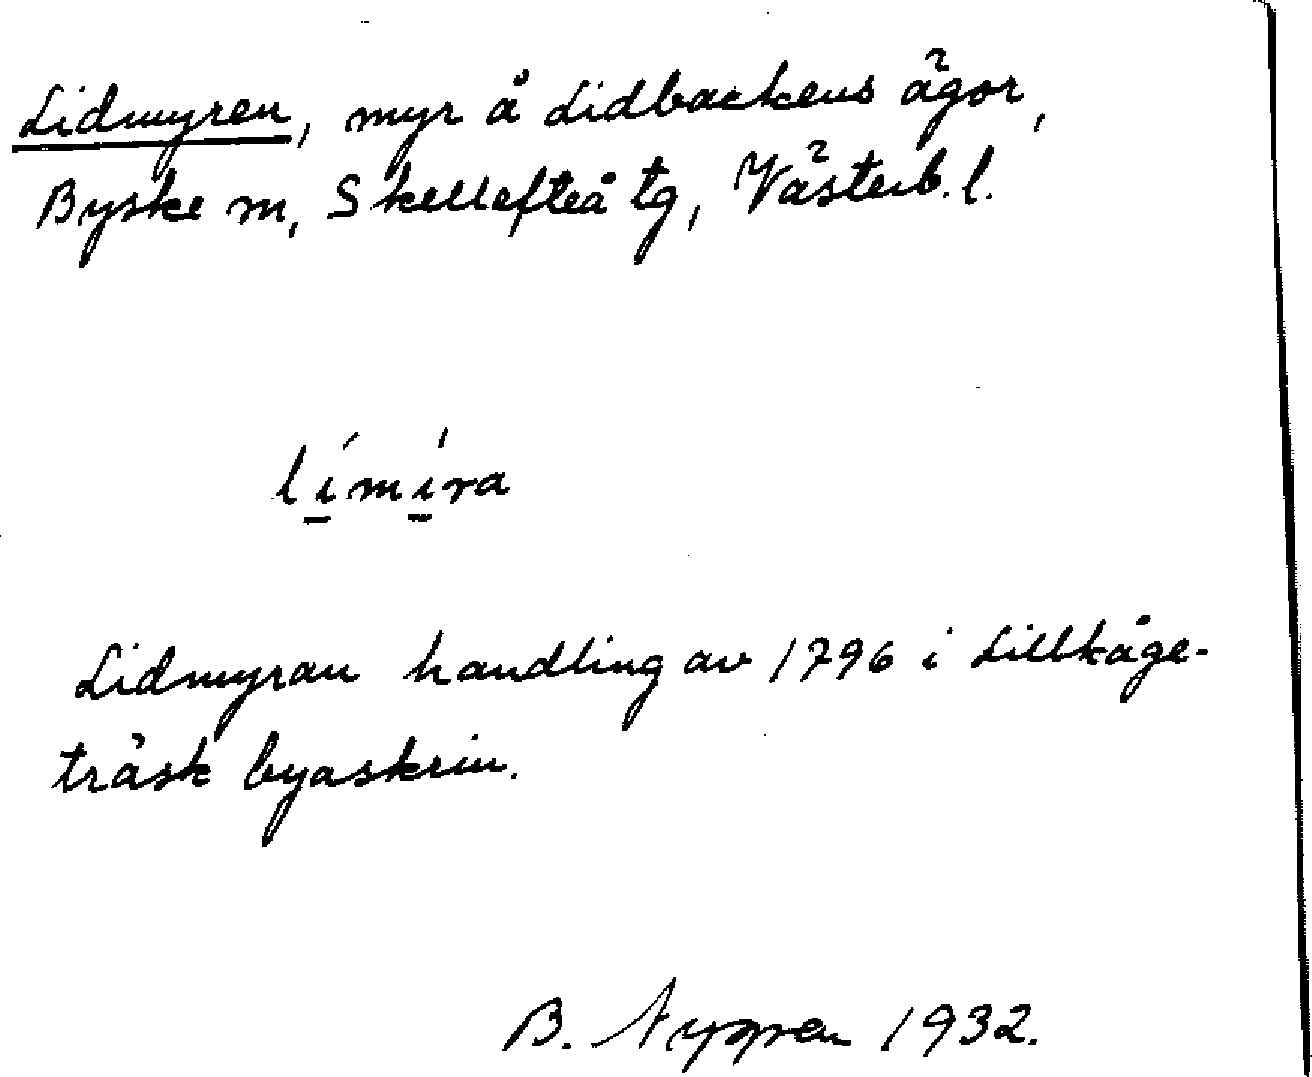 Lidmyren, myr å Lidbackens ägor,
Byske m, Skellefteå tg, Västerb. l.
li̱´mi̱´ra
Lidmyran handling av 1796 i Lillkåge-
träsk byaskrin.
B. Nygren 1932.